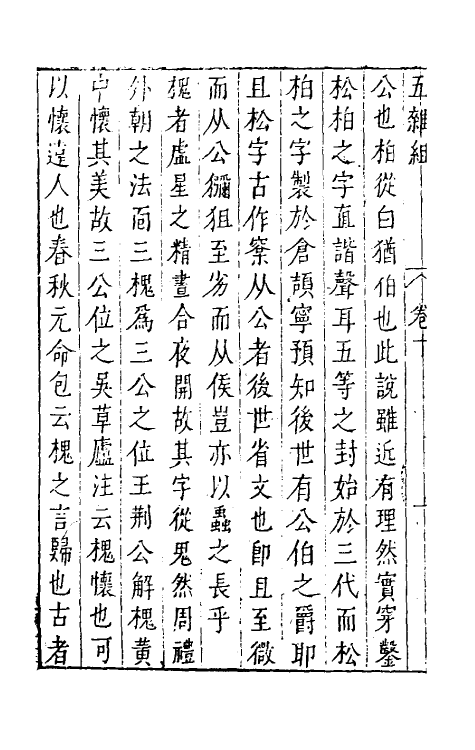 五雜組 卷十
公也柏從白猶伯也此說雖近有理然實穿鑿
松柏之字直諧聲耳五等之封始於三代而松
柏之字製於倉頡寧預知後世有公伯之爵耶
且松字古作㮤从公者後世省文也卽且至微
而从公獮狙至劣而从侯豈亦以蟲之長乎
槐者虛星之精晝合夜開故其字從鬼然周禮
外朝之法面三槐爲三公之位王荆公解槐黃
中懷其美故三公位之吳草廬注云槐懷也可
以懷遠人也春秋元命包云槐之言歸也古者